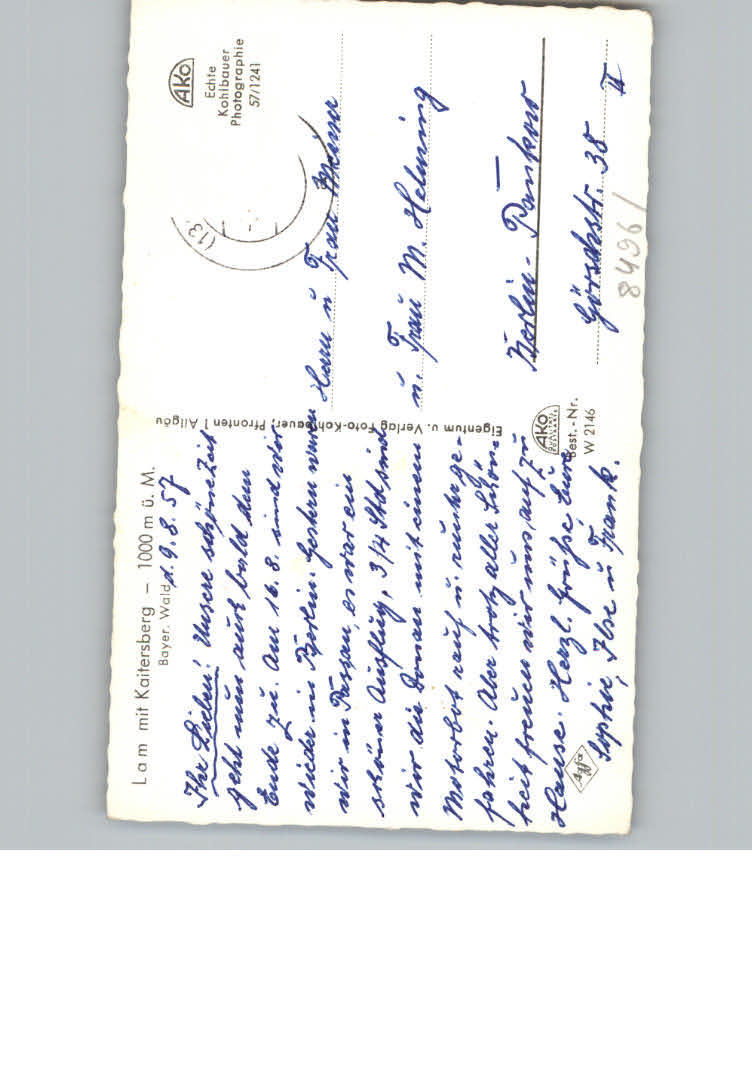 Lam mit Kaitersberg – 1000 m ü. M.
Bayer. Wald d. 9. 8. 57
Ihr Lieben! Unsere schöne Zeit
geht nun auch bald dem
Ende zu. Am 16. 8. sind wir
wieder in Berlin. Gestern waren
wir in Passau, es war ein
schöner Ausflug, 3/4 Std sind
wir die Donau mit einem
Motorbot rauf u. runter ge-
fahren. Aber trotz aller Schön-
heit freuen wir uns auf zu
Hause. Herzl. Grüße Eure
Sophie, Ilse u Frank.
Agfa
Eigentum u. Verlag Foto-Kohlbauer, Pfronten 1 Allgäu
AKO
QUALITÄTS
POSTKARTE
Best.-Nr.
W 2146
AKO
Echte
Kohlbauer
Photographie
57/1241
(13
Herrn u Frau
u. Frau M. Helming
Berlin - Pankow
Görschstr. 38 II
8496/